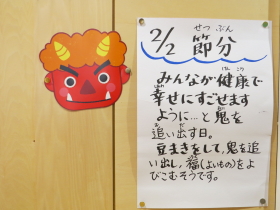 せつ ぶん
2/2 節分
みんなが健康で
けん こう
幸せにすごせます
しあわ
ように…と鬼を
おに
追い出す日。
お だ
豆まきをして、鬼を追
い出し、福(よいもの)をよ
びこむそうです。